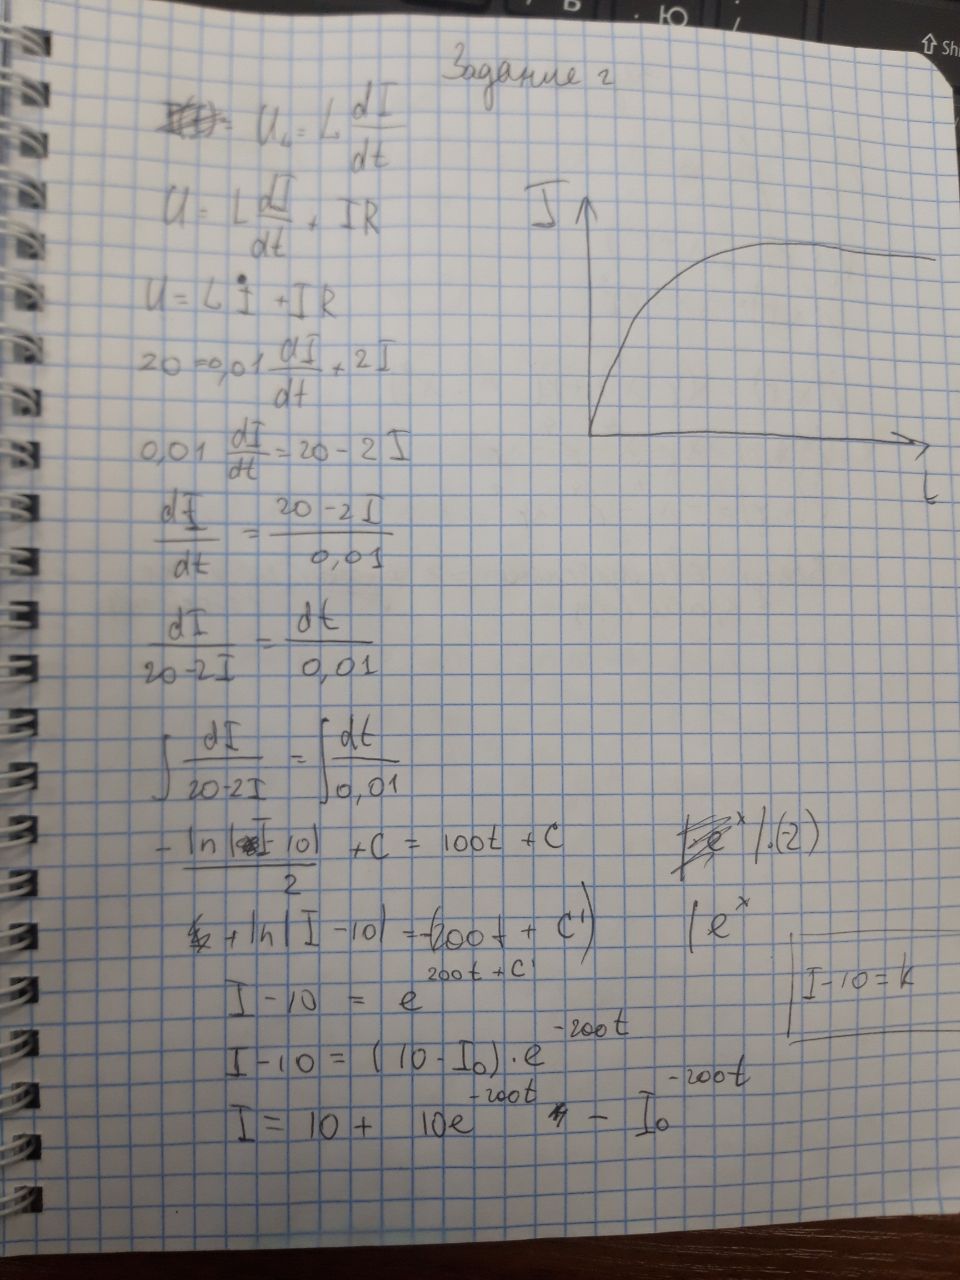 Ю
Shi
Задание 2
U_L = L dI/dt
U = L dI/dt + IR
U = L İ + IR
20 = 0,01 dI/dt + 2I
0,01 dI/dt = 20 - 2I
dI/dt = (20 - 2I)/0,01
dI/(20-2I) = dt/0,01
∫ dI/(20-2I) = ∫ dt/0,01
- ln|I - 10|/2 + C = 100t + C |·(-2)
+ ln|I - 10| = -(200t + C') | e^x
I - 10 = e^(200t + C')
I - 10 = k
I - 10 = (10 - I₀)·e^(-200t)
I = 10 + 10e^(-200t) - I₀^(-200t)
I
t